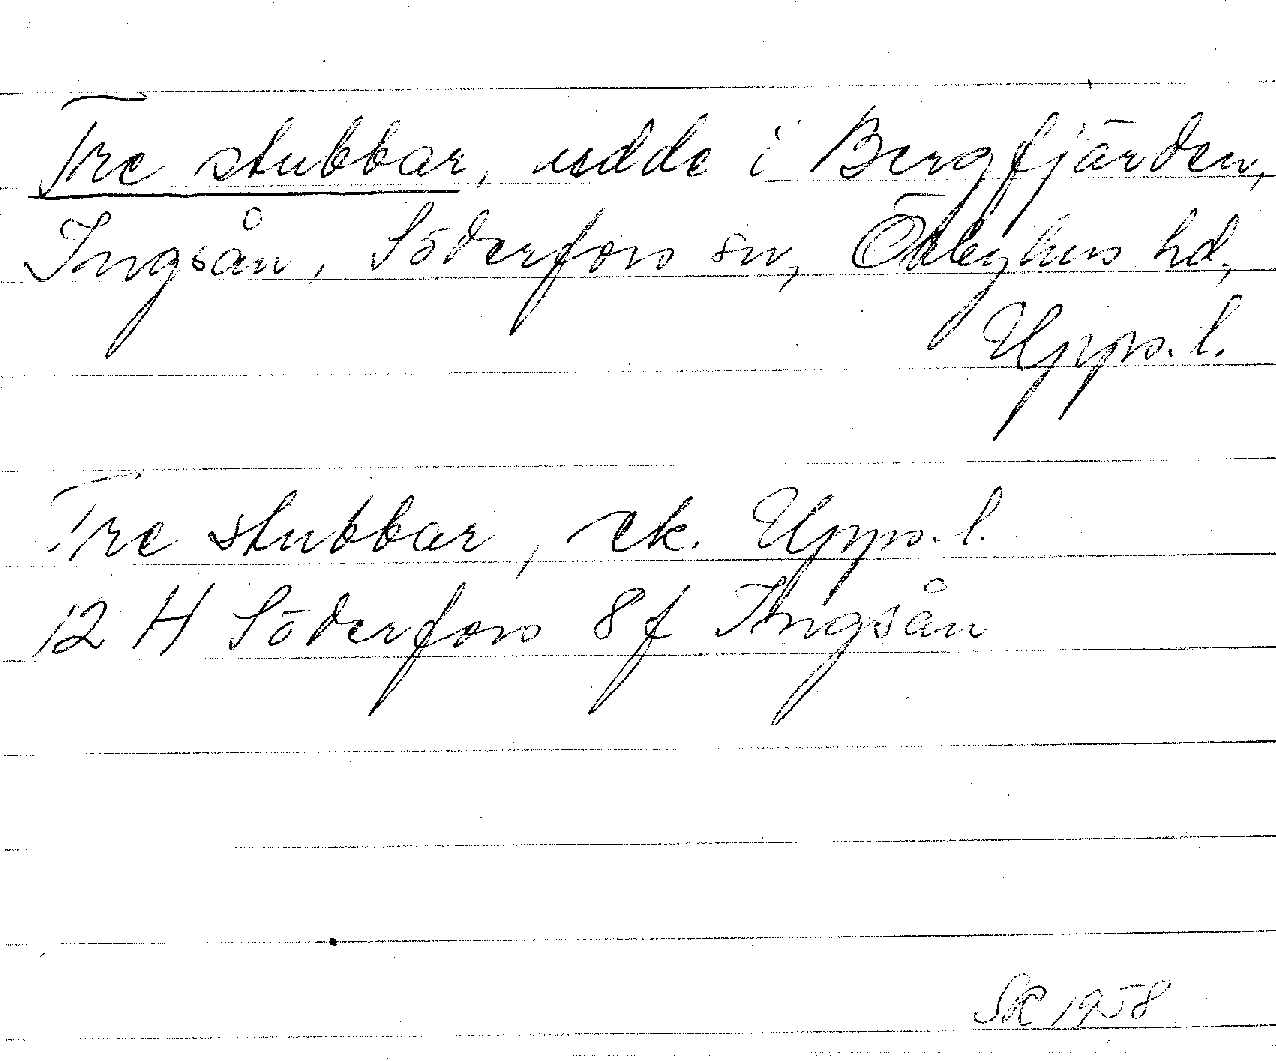 Tre stubbar, udde i Bergfjärden,
Ingsån, Söderfors sn, Örbyhus hd,
Upps. l.
Tre stubbar, ek. Upps. l.
12 H Söderfors 8 f Ingsån
SK 1958